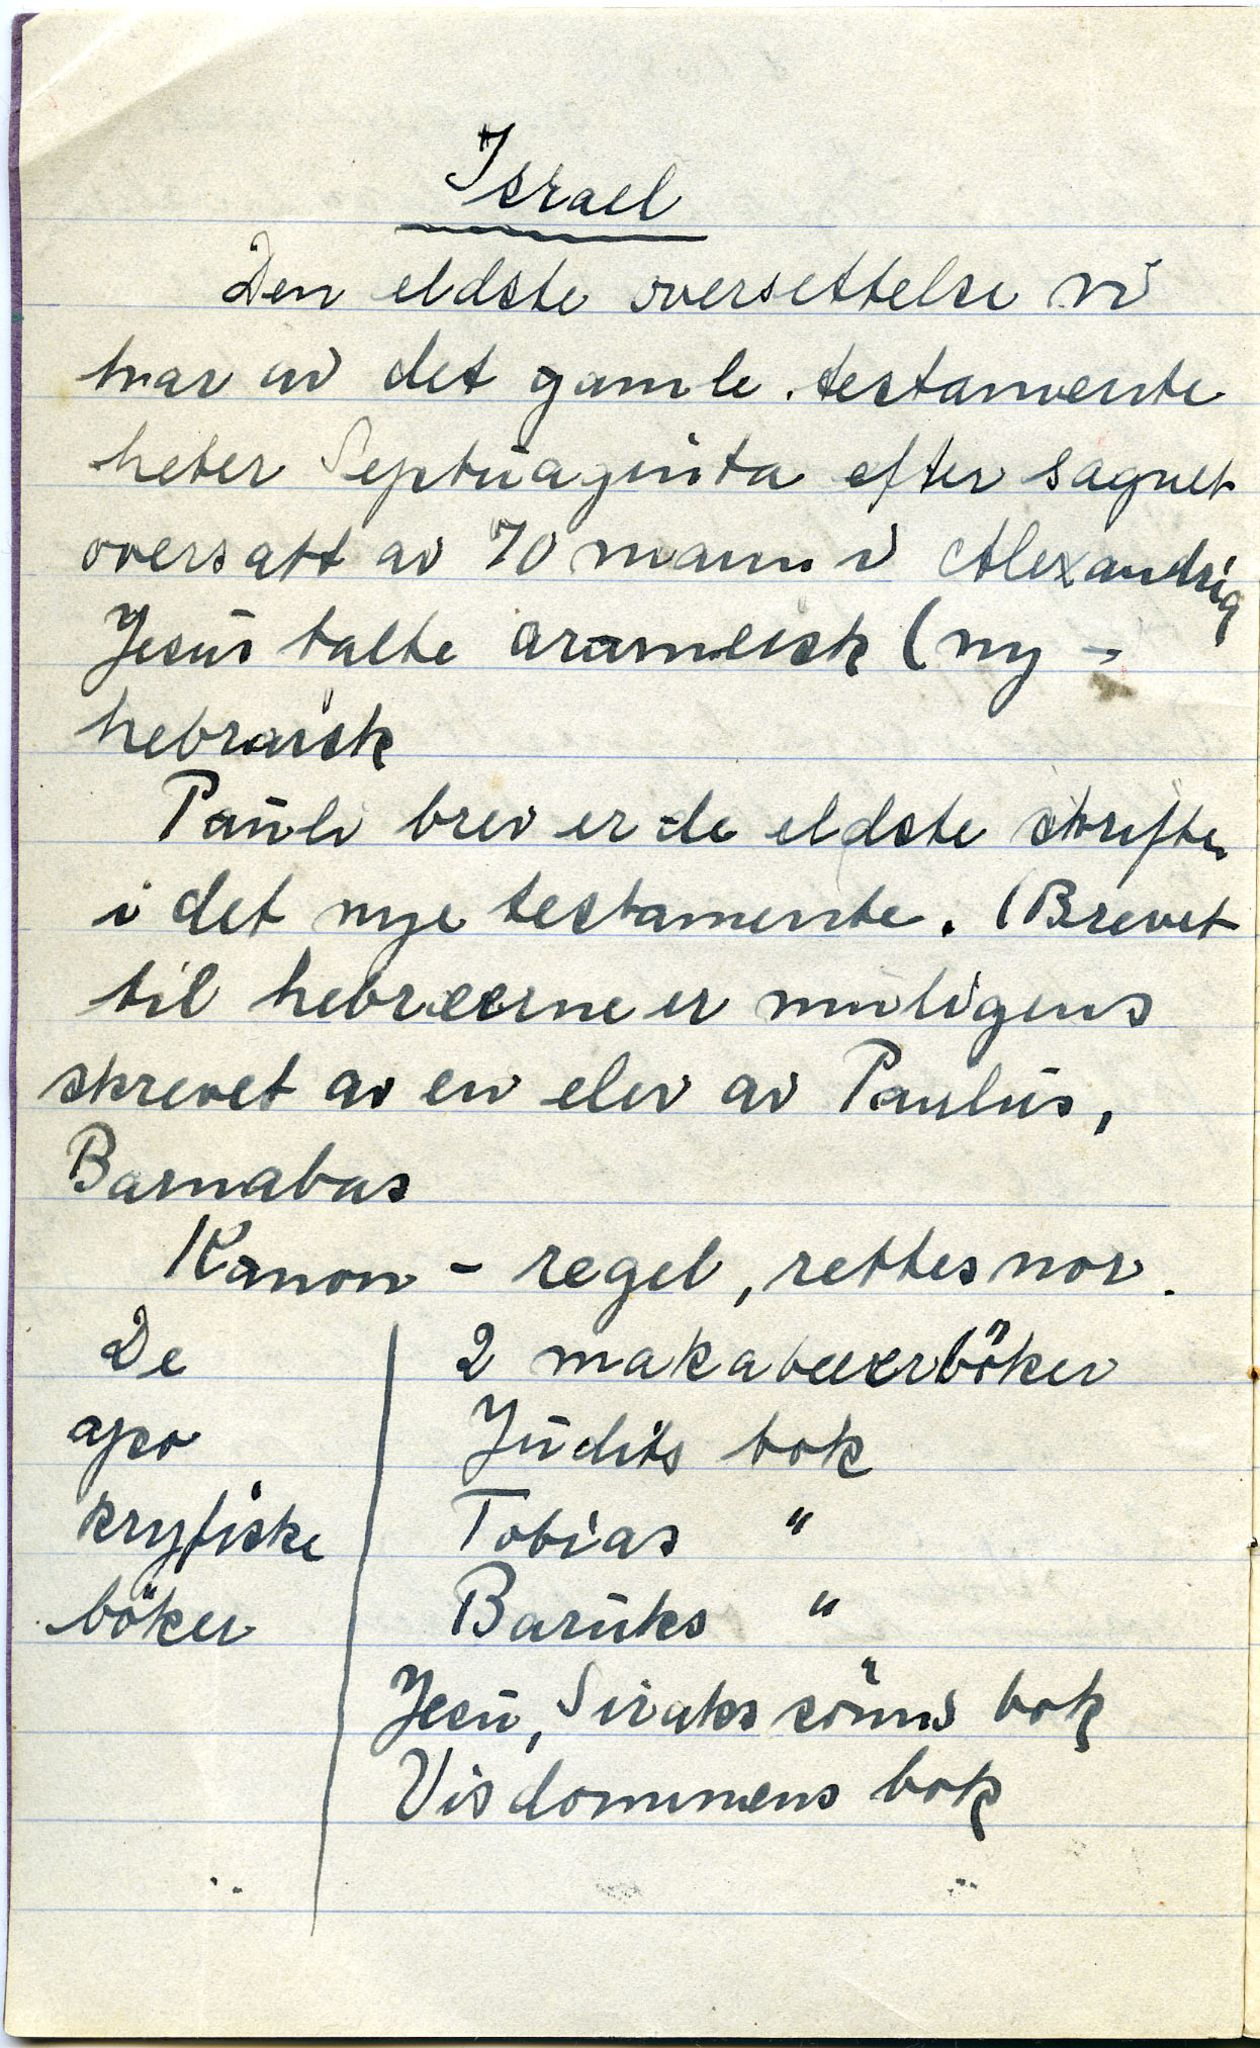 Israel
Den eldste oversettelse vi
har av det gamle testamente
heter Septuaginta efter sagnet
oversatt av 70 mann i Alexandria
Jesus talte arameisk (ny-
hebraisk
Pauli brev er de eldste skrifter
i det nye testamente. (Brevet
til hebreerne er muligens
skrevet av en elev av Paulus,
Barnabas
Kanon - regel, rettesnor.
De | 2 makabeerböker
apo | Judits bok
kryfiske | Tobias "
böker | Baruks "
Jesu, Siraks sönns bok
Visdommens bok